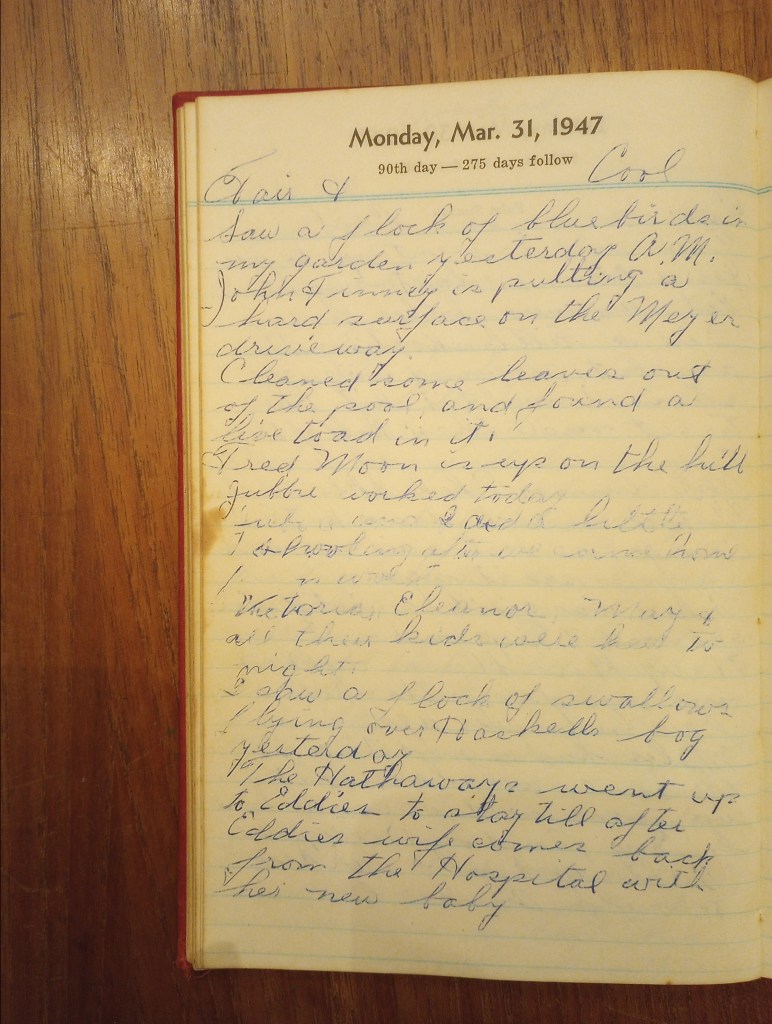 Monday, Mar. 31, 1947
90th day — 275 days follow
Fair & Cool
Saw a flock of bluebirds in
my garden yesterday A.M.
John Finney is putting a
hard surface on the Meyer
driveway.
Cleaned some leaves out
of the pool and found a
live toad in it.
Fred Moon is up on the hill
Jubbie worked today
did a little
after we came from
work
Victoria, Eleanor, Mary &
all their kids were here to
night.
I saw a flock of swallows
flying over Haskells bog
yesterday
The Hathaways went up
to Eddies to stay till after
Eddies wife comes back
from the Hospital with
her new baby